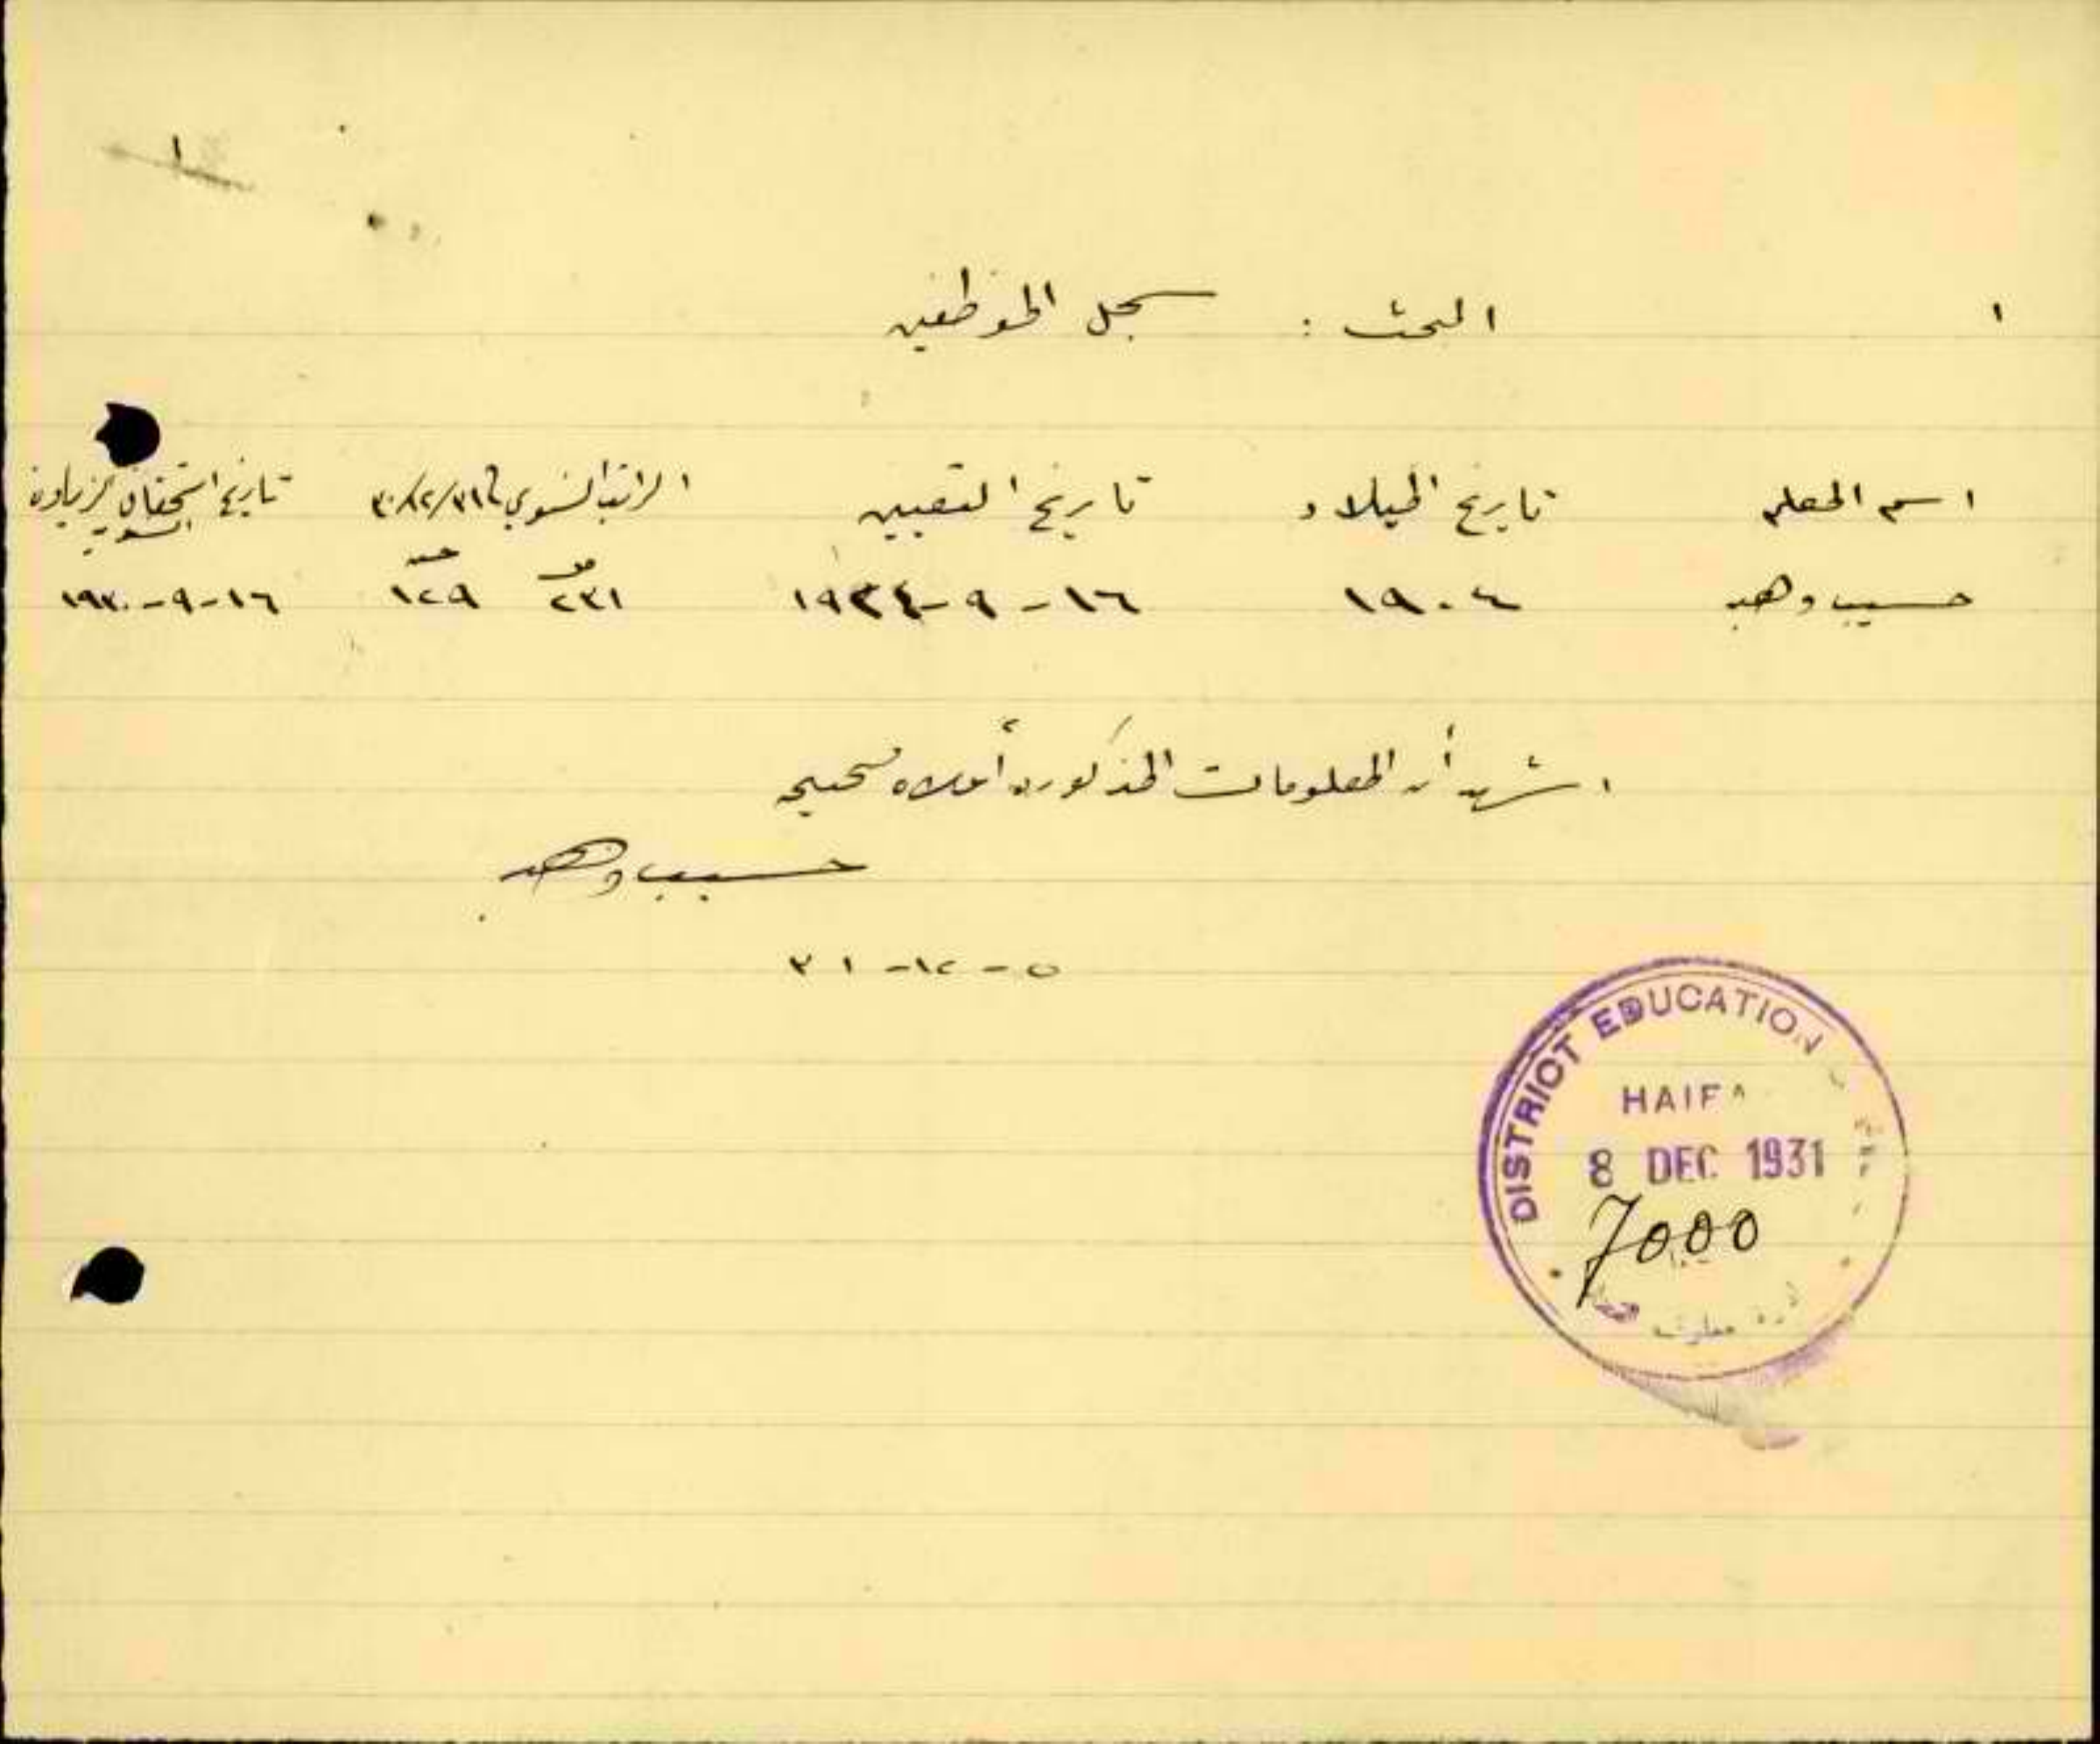 ١
١ البحث : سجل الموظفين
اسم المعلم تاريخ الميلاد تاريخ التعيين الراتب السنوي في ٣١/١٢/٣٠ تاريخ استحقاق الزيادة السنوية
حسيب وهبه ١٩٠٤ ١٦-٩-١٩٢٤ ٢٣١ ١٢٩ ١٦-٩-١٩٣٠
اشهد أن المعلومات المذكورة أعلاه صحيحه
حسيب وهبه
٥-١٢-٣١
DISTRICT EDUCATION
HAIFA
8 DEC 1931
7000
معارف